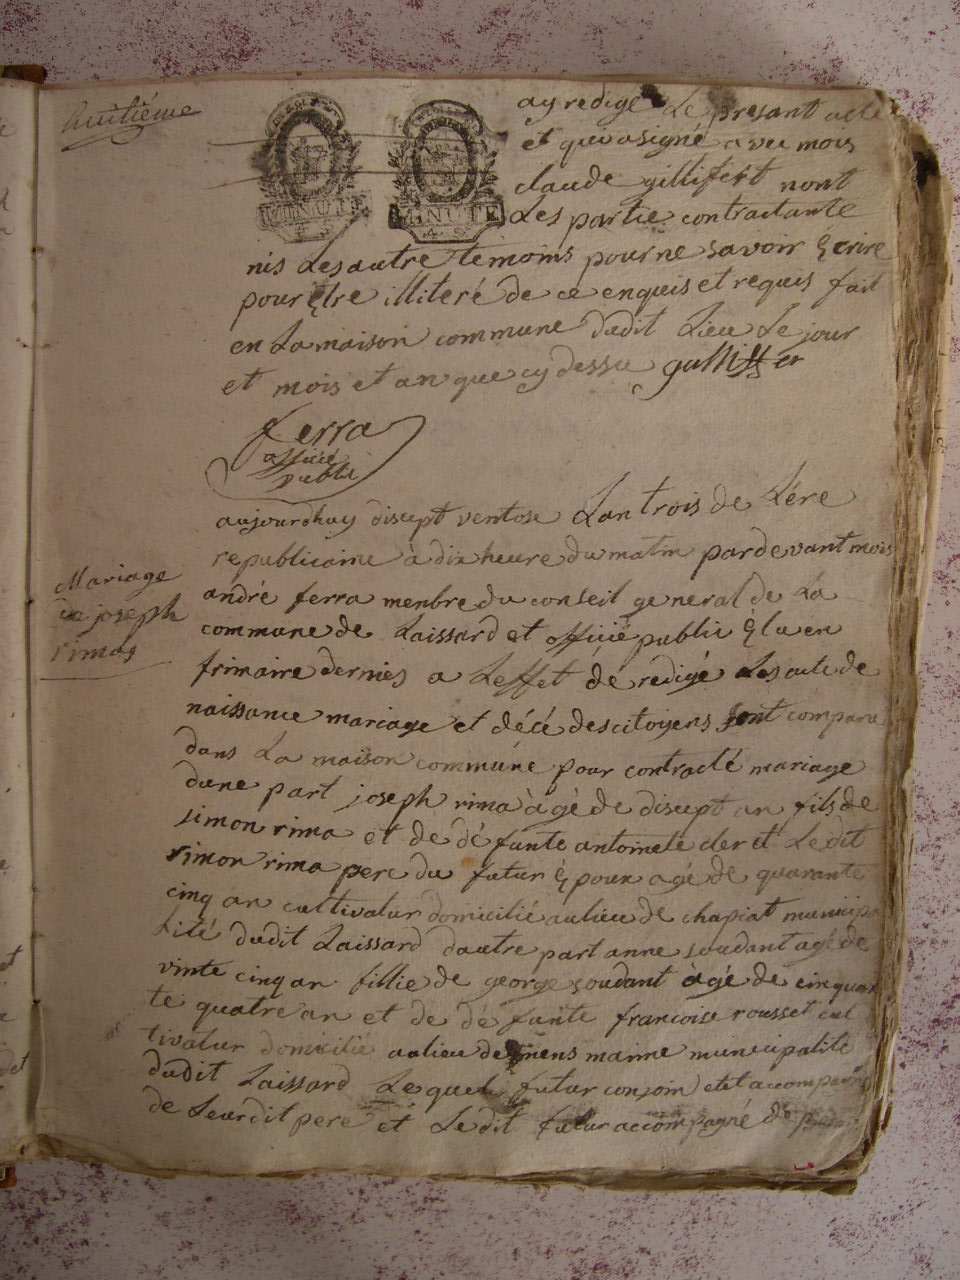 huitiéme
MINUTE MINUTE
ay redigé Le presant acte
et qui a signé avec mois
claude gillifert nont
Les partie contractante
nis Les autre temoins pour ne savoir Ecrire
pour Etre illiteré de ce enquis et requis fait
en La maison commune dudit Lieu Le jour
et mois et an que cy dessu
ferra
officié
publi
aujourdhuy disept ventose Lan trois de Lére
republicaine à dix heure du matin par devant mois
Mariage
de joseph
rimas
andré ferra menbre du conseil general de La
commune de Laissard et officié public Elu en
frimaire dernies a Leffet de redigé Les acte de
naissance mariage et décé des citoyens sont compara
dans La maison commúne pour contracté mariage
dune part joseph rima àgé de disept an fils de
simon rima et de défunte antoinete cleret Le dit
simon rima pere du futur Epoux agé de quarante
cinq an cultivatur domicilié au lieu de chapiat municipa
lité dudit Laissard dautre part anne soudant agé de
vinte cinq an fillie de george soudant àgé de cinquan
te quatre an et de défunte francoise rousset cul
tivatur domicilié au lieu de mens marine municipalité
dudit Laissard Lesquel futur conjoin etet accompagné
de Leurdit pere et Ledit futur accompagné de